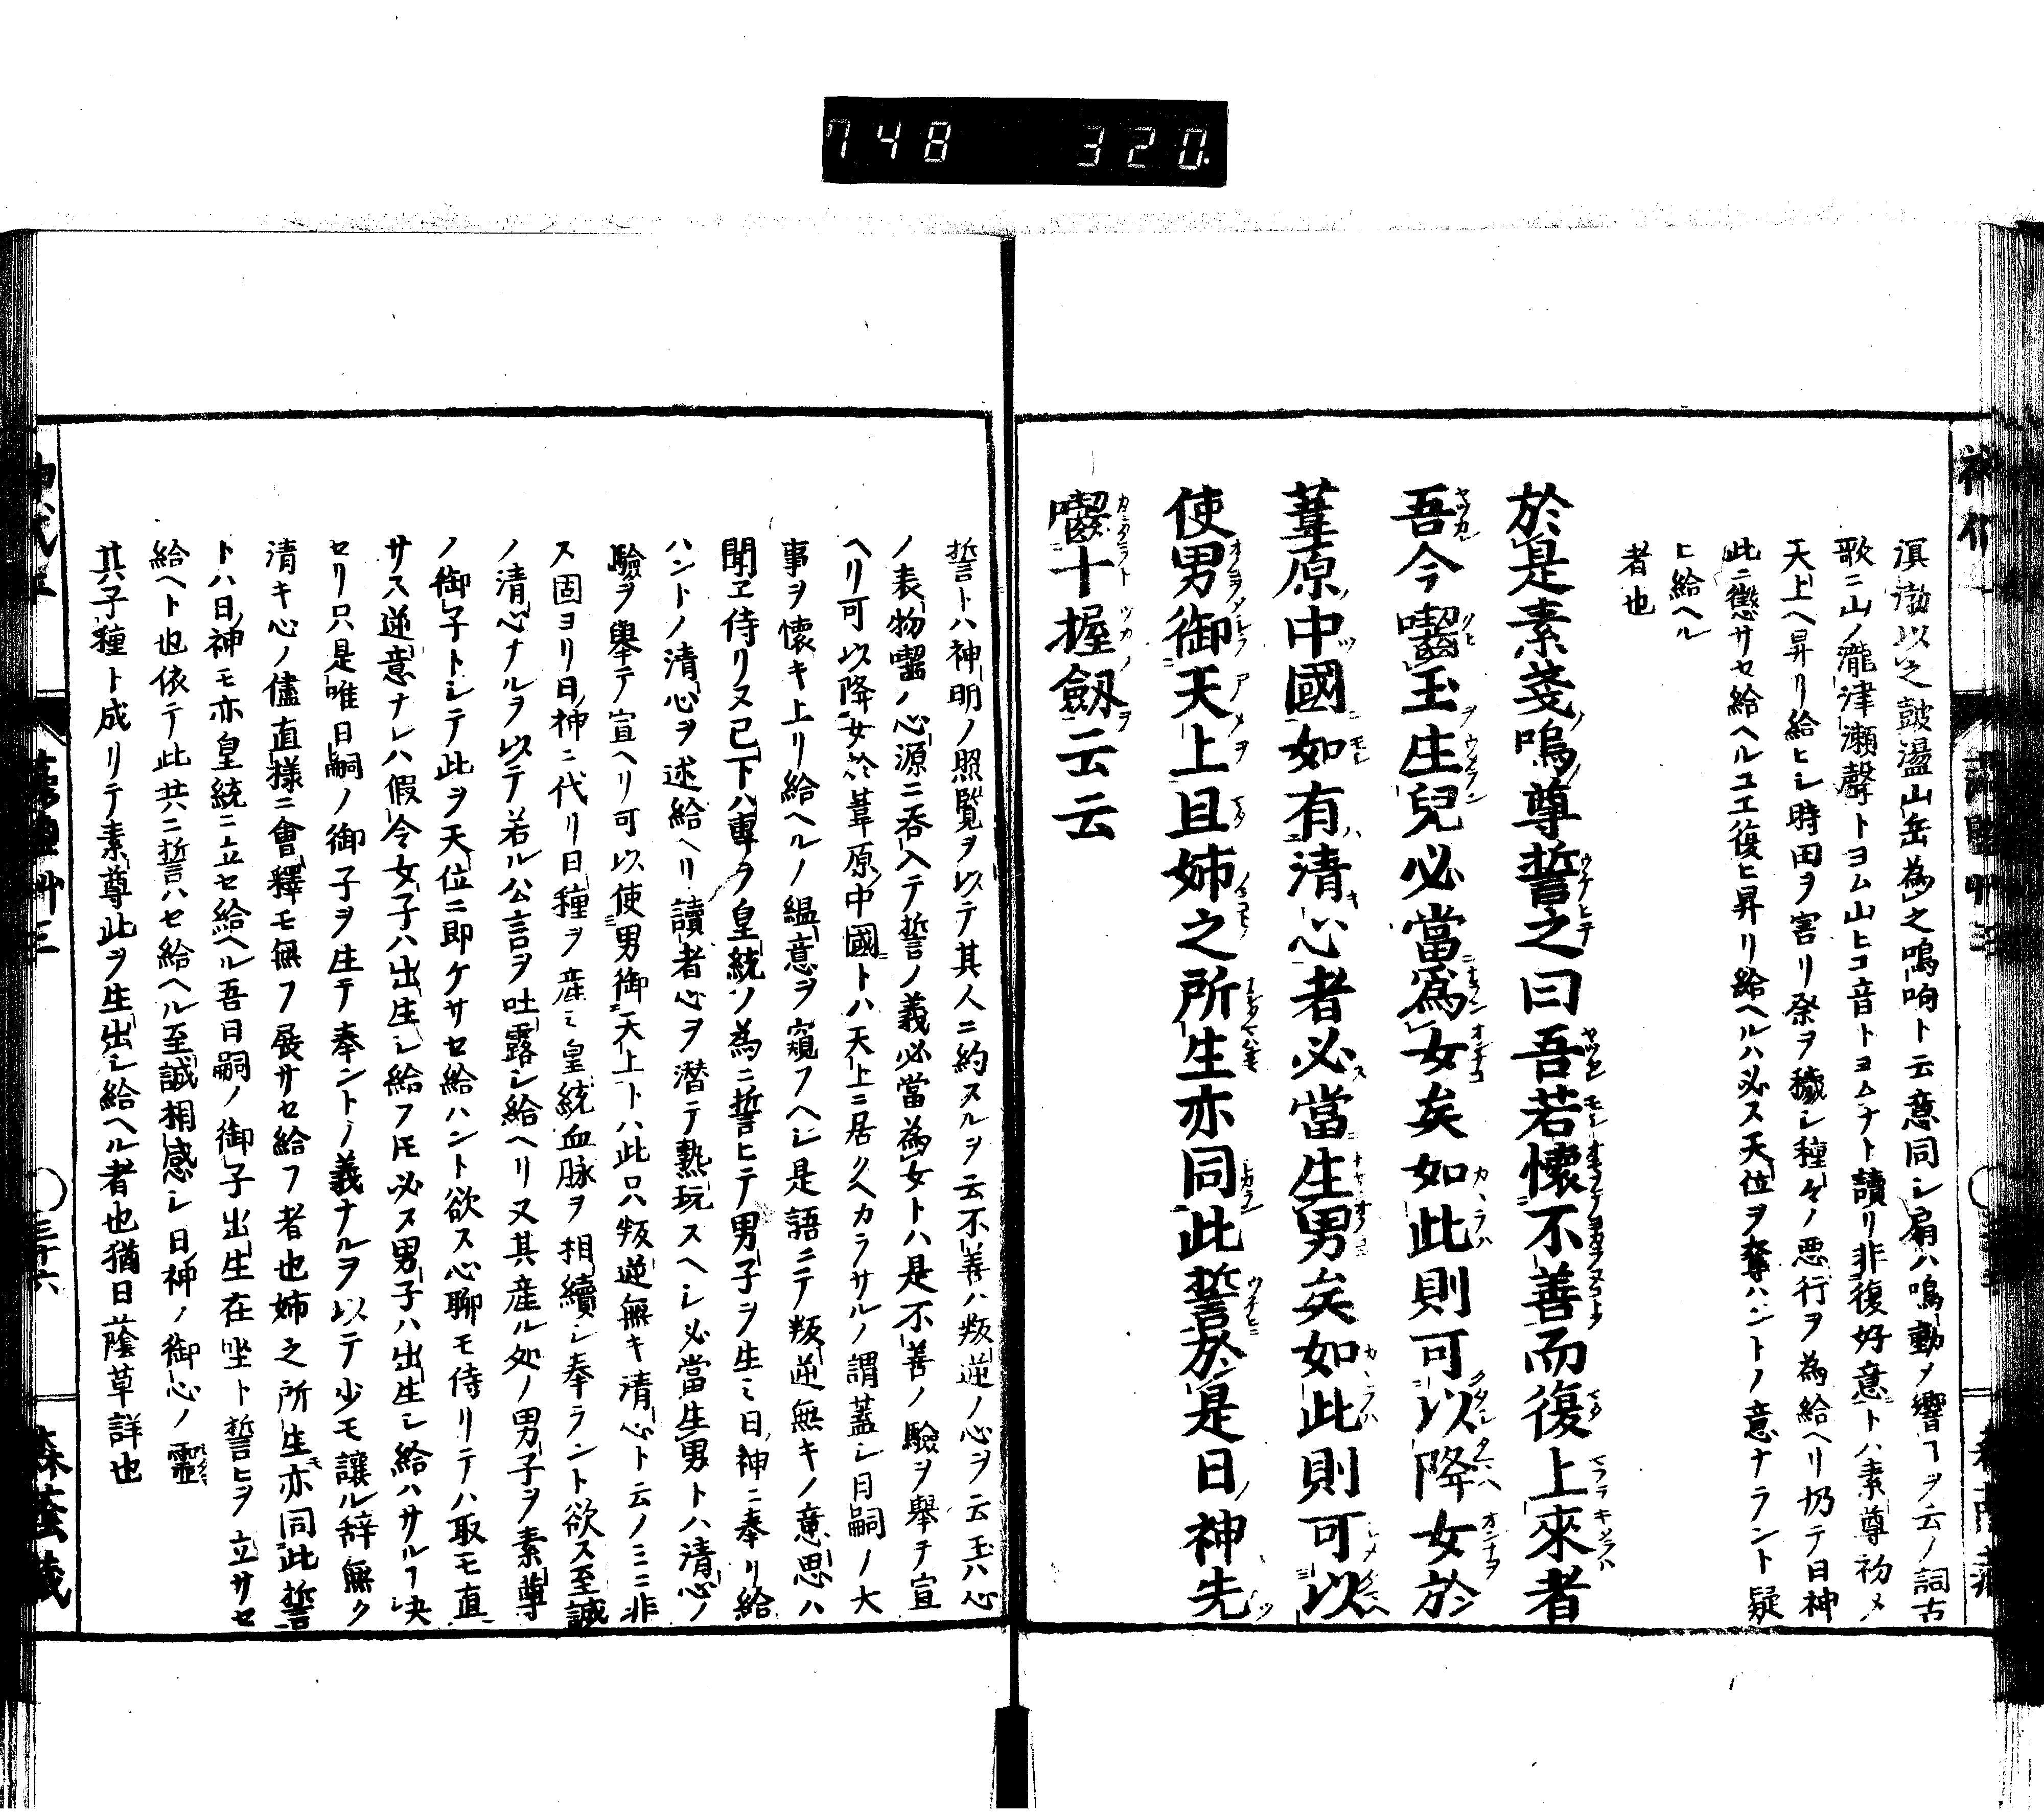 748 320.
溟渤以之皷盪山岳為之鳴响ト云意同シ扇ハ鳴動メ響ヿヲ云ノ詞古
歌ニ山ノ瀧津瀬聲トヨム山ヒコ音トヨムナト讀リ非復好意トハ素尊初メ
天上ヘ昇リ給ヒシ時田ヲ害リ祭ヲ穢シ種々ノ悪行ヲ為給ヘリ扔テ日神
此ニ懲サセ給ヘルユエ復ヒ昇リ給ヘルハ必ス天位ヲ奪ハントノ意ナラント疑
ヒ給ヘル
者也
於是素戔嗚尊誓之曰吾若懷不善而復上來者
吾今囓玉生兒必當爲女矣如此則可以降女於
葦原中國如有清心者必當生男矣如此則可以
使男御天上且姉之所生亦同此誓於是日神先
囓十握劔云云
誓トハ神明ノ照覧ヲ以テ其人ニ約スルヲ云不善ハ叛逆ノ心ヲ云玉ハ心
ノ表物囓ノ心源ニ呑入テ誓ノ義必當為女トハ是不善ノ驗ヲ舉テ宣
ヘリ可以降女於葦原中國トハ天上ニ居クヘカラサルノ謂蓋シ日嗣ノ大
事ヲ懷キ上リ給ヘルノ緼意ヲ窺フヘシ是語ニテ叛逆無キノ意思ハ
聞ヱ侍リヌ已下ハ專ラ皇統ノ為ニ誓ヒテ男子ヲ生ミ日神ニ奉リ給
ハントノ清心ヲ述給ヘリ讀者心ヲ潜テ熟玩スヘシ必當生男トハ清心ノ
驗ヲ舉テ宣ヘリ可以使男御天上トハ此只叛逆無キ清心ト云ノミニ非
ス固ヨリ日神ニ代リ日種ヲ産ミ皇統血脉ヲ相續シ奉ラント欲ス至誠
ノ清心ナルヲ以テ若ル公言ヲ吐露シ給ヘリ又其産ル処ノ男子ヲ素尊
ノ御子トシテ此ヲ天位ニ即ケサセ給ハント欲ス心聊モ侍リテハ取モ直
サス逆意ナレハ假令女子ハ出生シ給フトモ必ス男子ハ出生シ給ハサルヿ决
セリ只是唯日嗣ノ御子ヲ生テ奉ントノ義ナルヲ以テ少モ讓ル辞無ク
清キ心ノ儘直様ニ會釋モ無フ展サセ給フ者也姉之所生亦同此誓
トハ日神モ亦皇統ニ立セ給ヘル吾日嗣ノ御子出生在坐ト誓ヒヲ立サセ
給ヘト也依テ此共ニ誓ハセ給ヘル至誠相感シ日神ノ御心ノ靈
其子種ト成リテ素尊此ヲ生出シ給ヘル者也猶日蔭草詳也
三十六